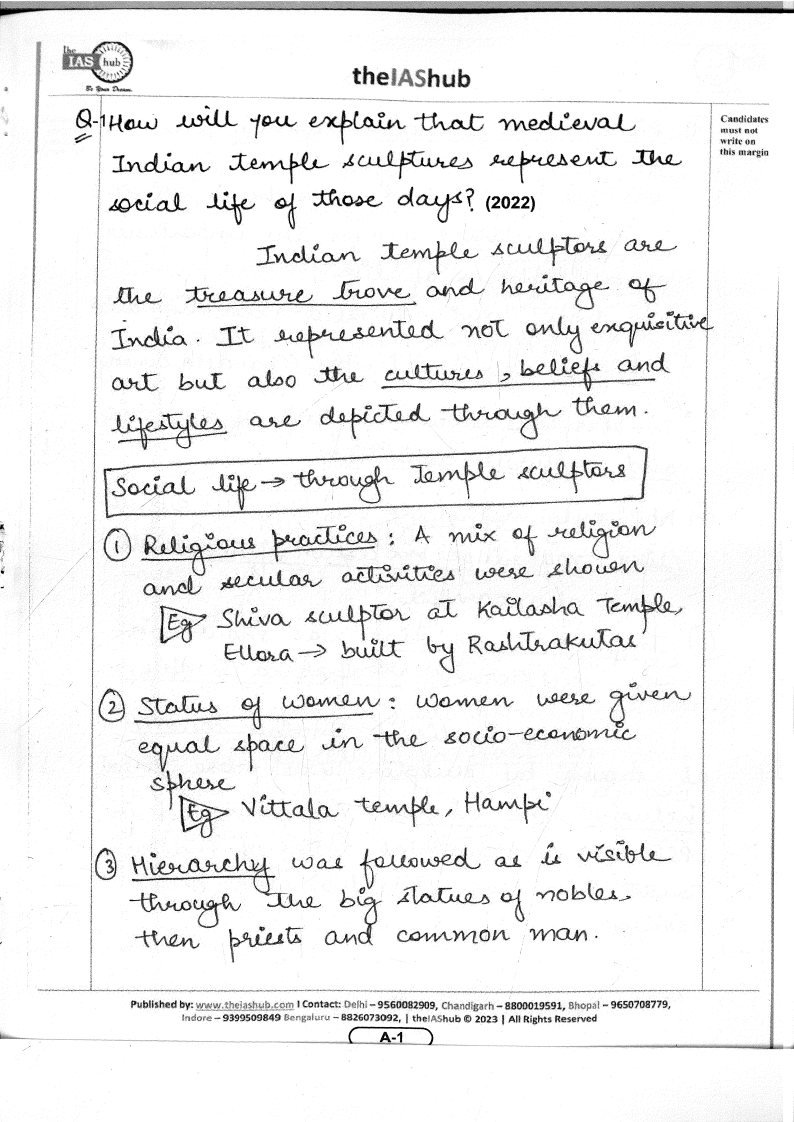 The
IAS hub
Be Your Dream.
theIAShub
Candidates
must not
write on
this margin
Q-1 How will you explain that medieval
Indian temple sculptures represent the
social life of those days? (2022)
Indian temple sculptors are
the treasure trove and heritage of
India. It represented not only exquisitive
art but also the cultures, beliefs and
lifestyles are depicted through them.
Social life → through Temple sculptors
① Religious practices : A mix of religion
and secular activities were shown
Eg Shiva sculptor at Kailasha Temple,
Ellora → built by Rashtrakutas
② Status of women : women were given
equal space in the socio-economic
sphere
Eg Vittala temple, Hampi
③ Hierarchy was followed as is visible
through the big statues of nobles,
then priests and common man.
Published by: www.theiashub.com I Contact: Delhi – 9560082909, Chandigarh – 8800019591, Bhopal – 9650708779,
Indore – 9399509849 Bengaluru – 8826073092, | theIAShub © 2023 | All Rights Reserved
A-1